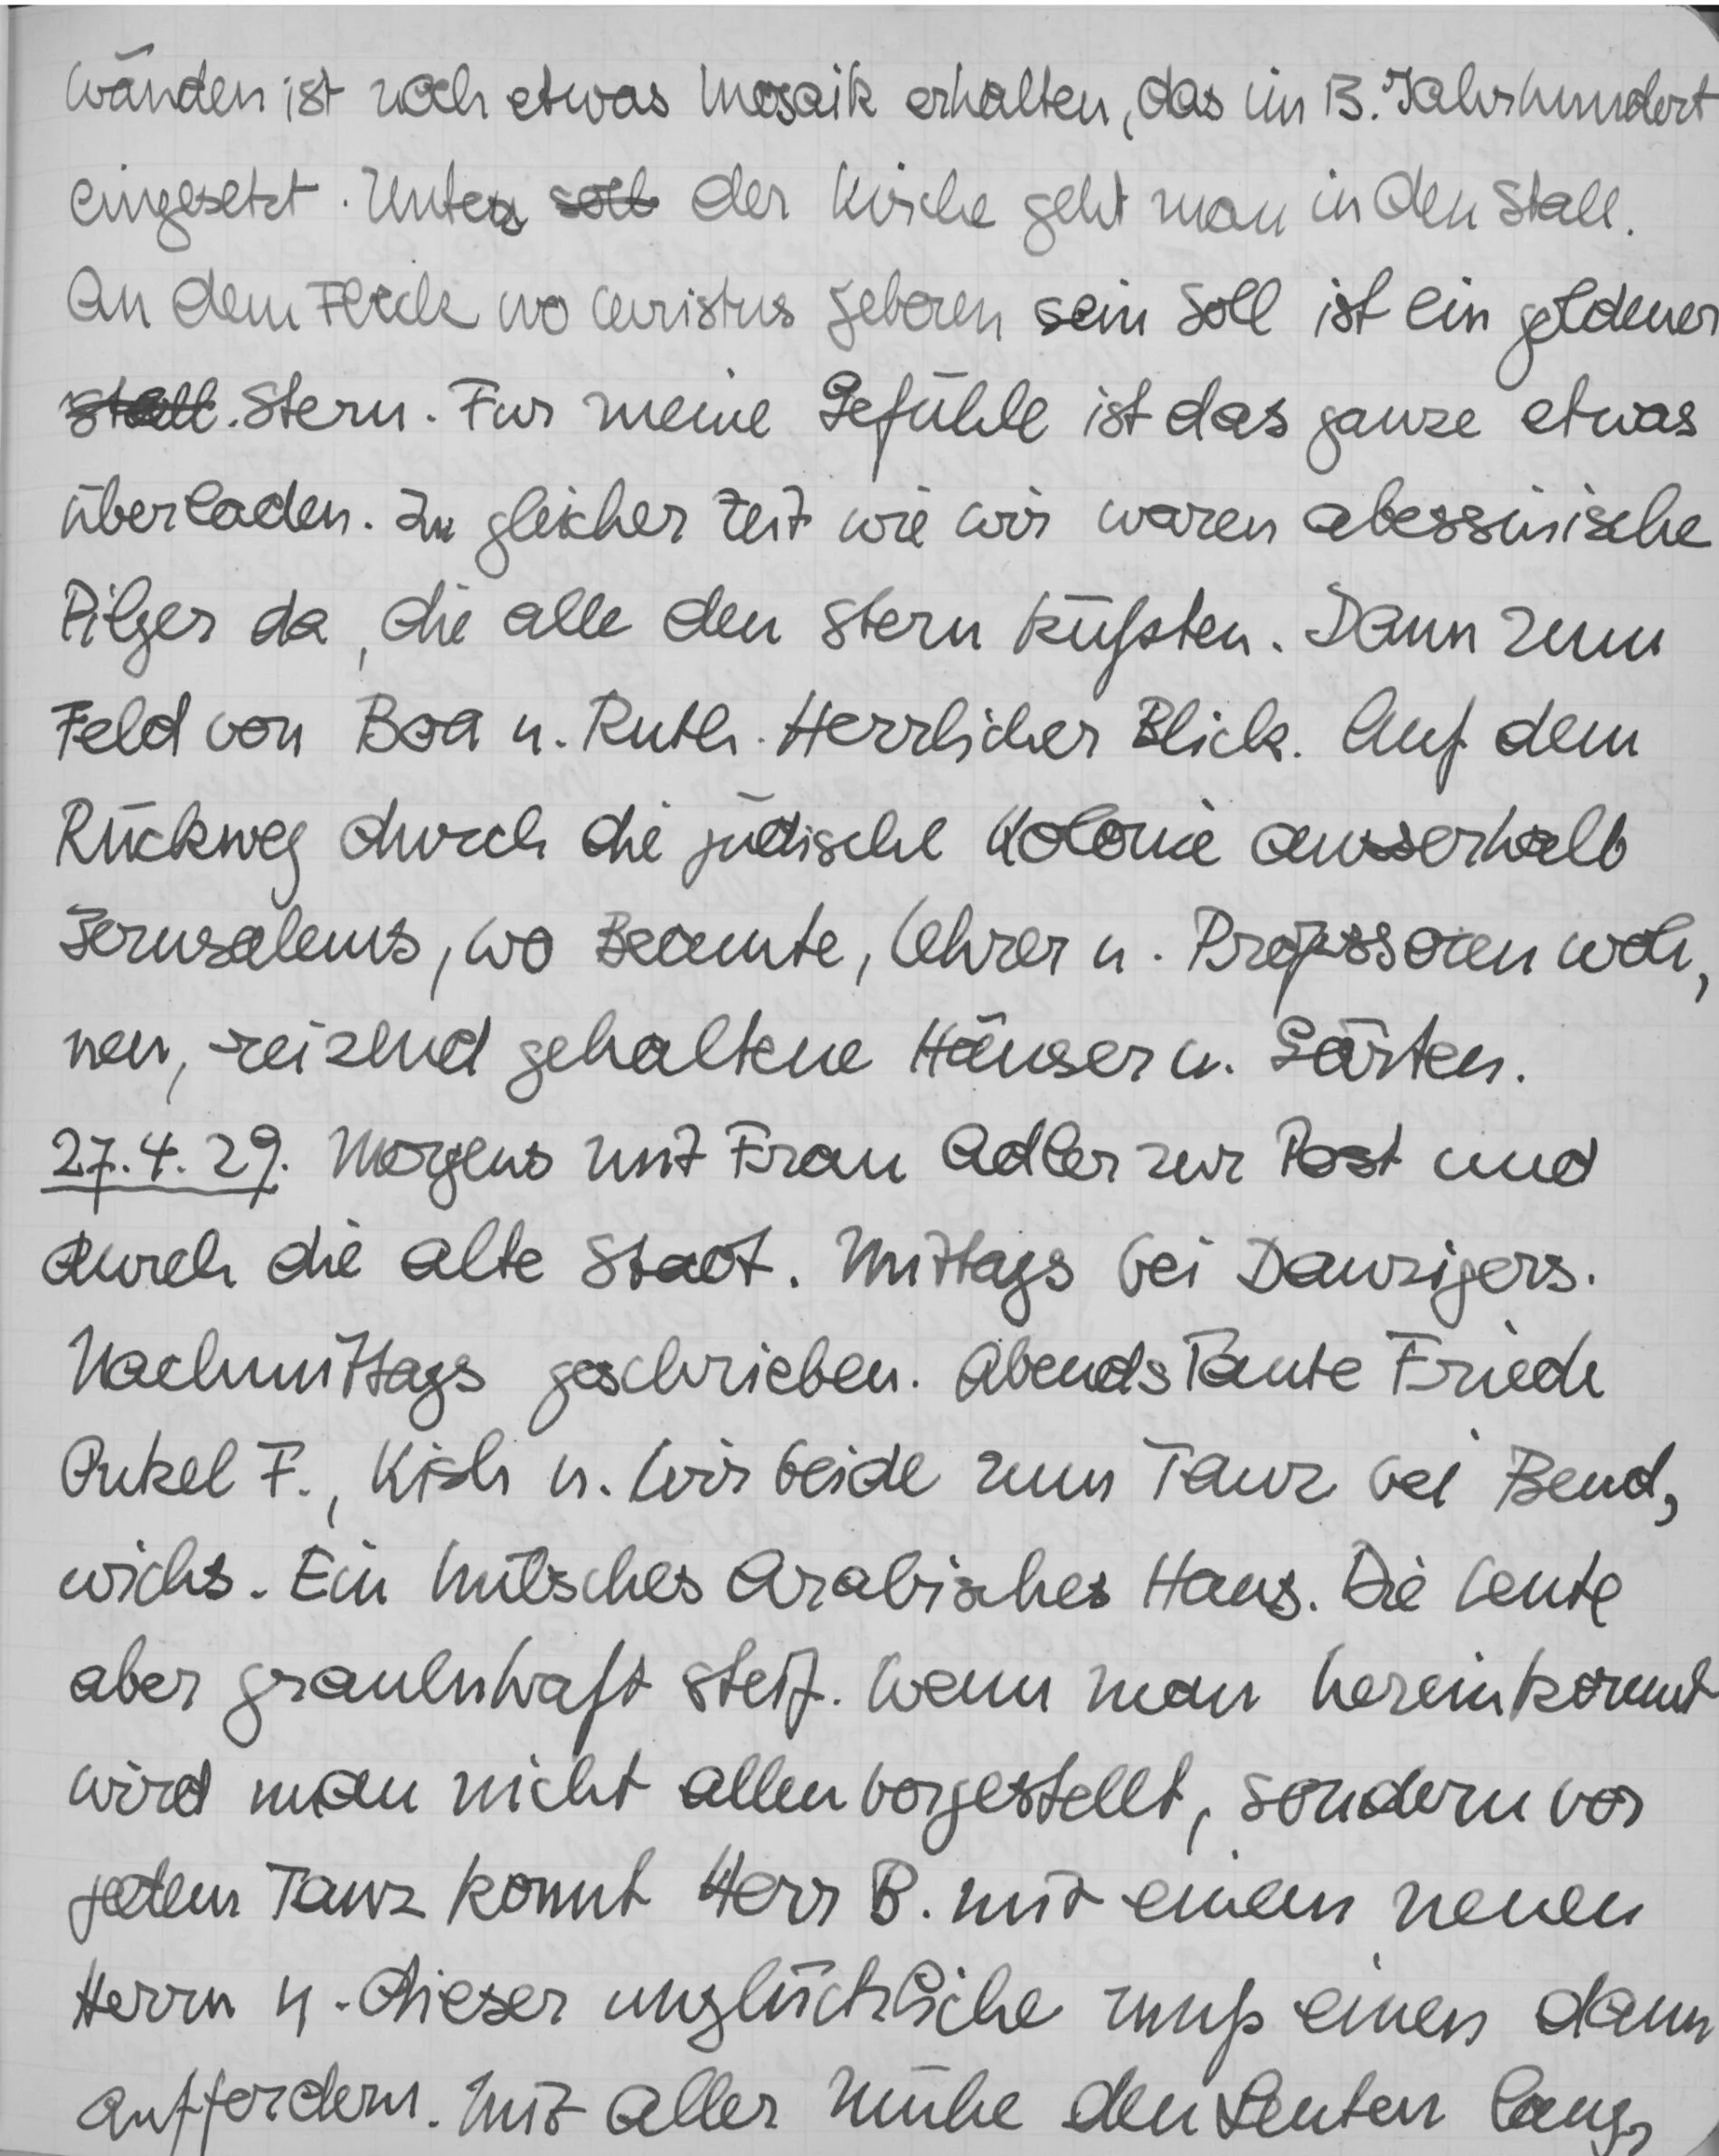 wänden ist noch etwas Mosaik erhalten, das im 13. Jahrhundert
eingesetzt. Unter soll der Kirche geht man in den Stall.
An dem Fleck wo Christus geboren sein soll ist ein goldener
Stall. Stern. Für meine Gefühle ist das ganze etwas
überladen. Zu gleicher Zeit wie wir waren abessinische
Pilger da, die alle den Stern küßten. Dann zum
Feld von Boa u. Ruth. Herrlicher Blick. Auf dem
Rückweg durch die jüdische Kolonie ausserhalb
Jerusalems, wo Beamte, Lehrer u. Professoren woh,
nen, reizend gehaltene Häuser u. Gärten.
27.4.29. Morgens mit Frau Adler zur Post und
durch die alte Stadt. Mittags bei Danzigers.
Nachmittags geschrieben. Abends Tante Friede
Onkel F., Kish u. wir beide zum Tanz bei Bend,
wichs. Ein hübsches Arabisches Haus. Die Leute
aber grauenhaft steif. Wenn man hereinkommt
wird man nicht allen vorgestellt, sondern vor
jedem Tanz kommt Herr B. mit einem neuen
Herrn u. dieser unglückliche muß einen dann
auffordern. Mit aller Mühe den Leuten lang,